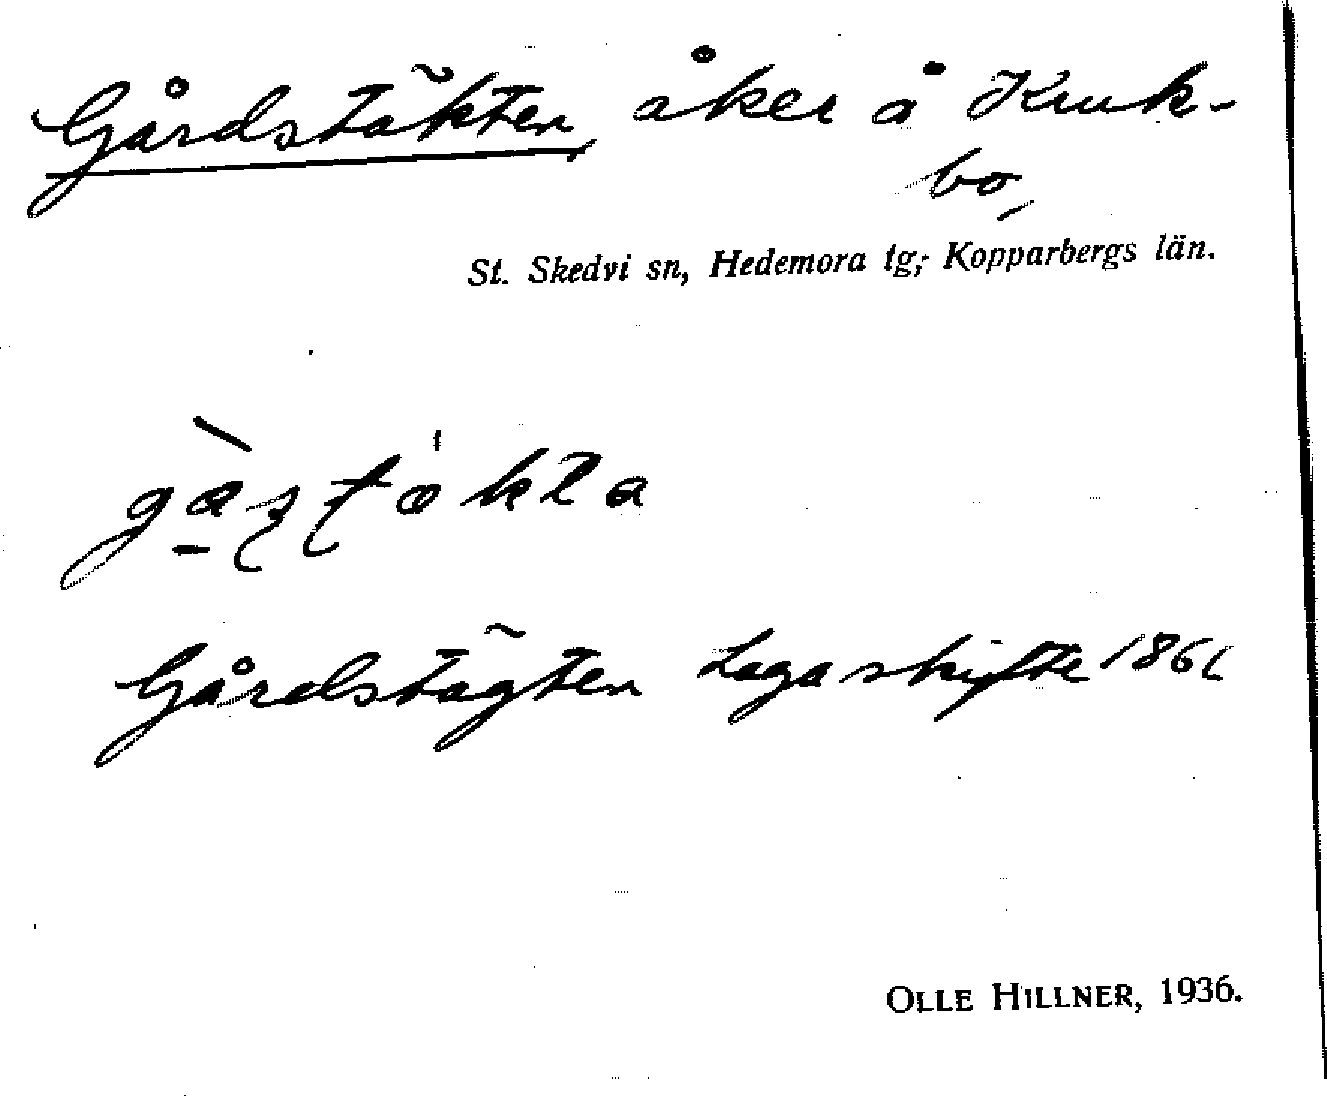 Gårdstäkten, åker å Kruk-
bo,
St. Skedvi sn, Hedemora tg, Kopparbergs län.
Gårdstägten Lagaskifte 186
OLLE HILLNER, 1936.